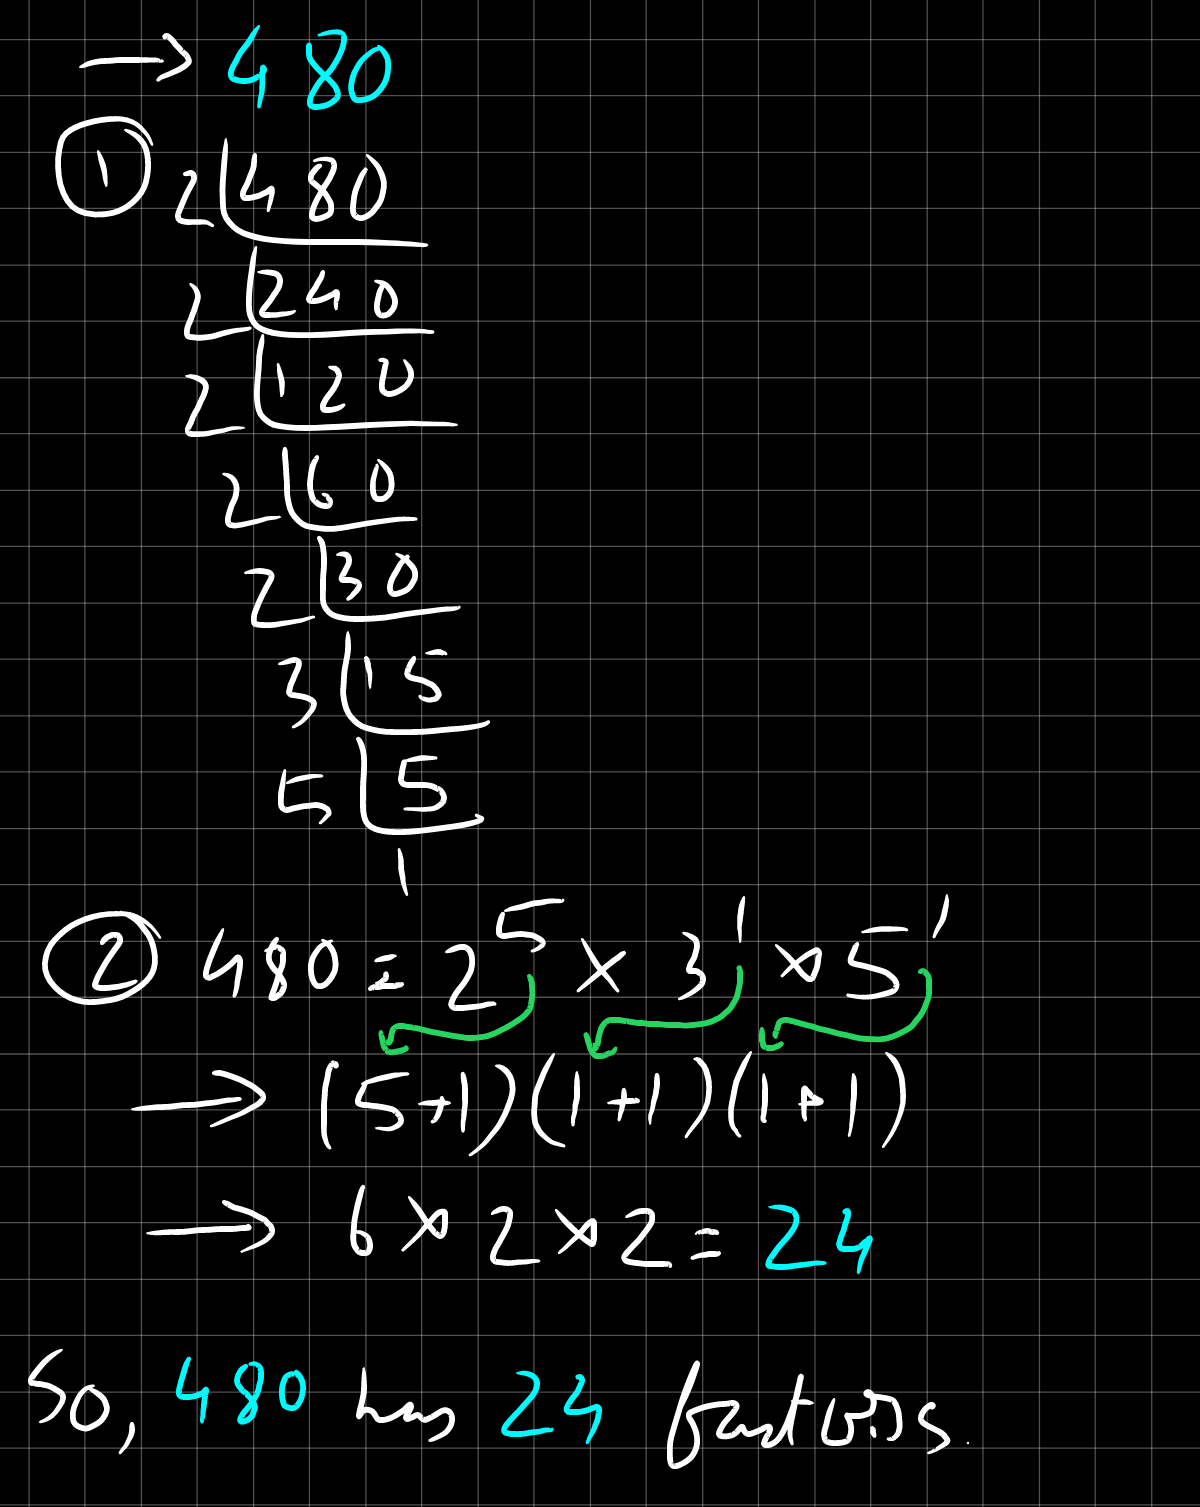 → 480
① 2 480
2 240
2 120
2 60
2 30
3 15
5 5
1
② 480 = 2⁵ × 3¹ × 5¹
→ (5+1)(1+1)(1+1)
→ 6 × 2 × 2 = 24
So, 480 has 24 factors.